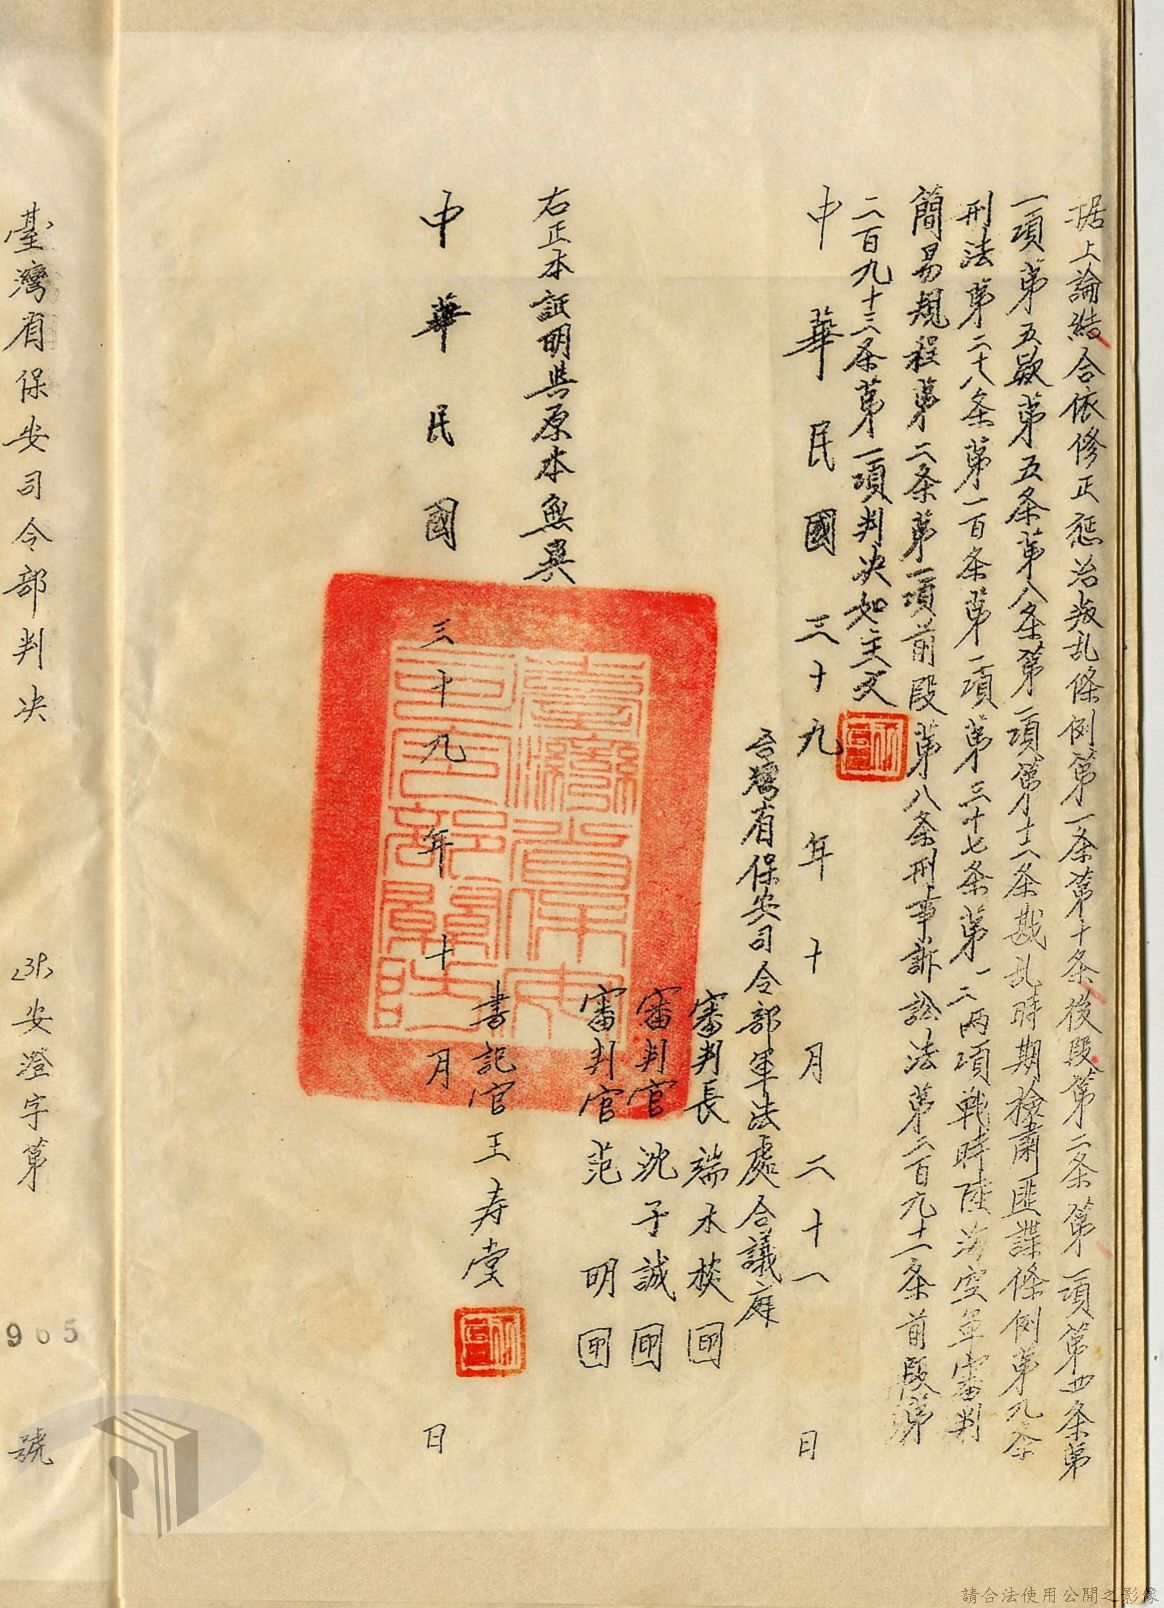 据上論結合依修正惩治叛乱條例第一条第十条後段第二条第一項第四条第
一項第五款第五条第八条第一項第十一条戡乱時期檢肅匪諜條例第九条
刑法第二十八条第一百条第一項第三十七条第一二兩項戦時陸海空軍審判
簡易規程第二条第一項前段第八条刑事訴訟法第二百九十一条前段第
二百九十三条第一項判决如主文
中華民國三十九年十月二十一日
台灣省保安司令部軍法處合議庭
審判長 端木棪 印
審判官 沈子誠 印
審判官 范明 印
右正本証明與原本無異
書記官 王寿堂
中華民國三十九年十月 日
臺灣省保安司令部
臺灣省保安司令部判决
(39)安澄字第 965 號
請合法使用公開之影像